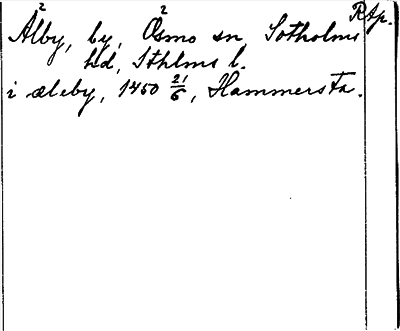 Ålby, by, Ösmo sn, Sotholms RAp.
hd, Sthlms l.
i æleby, 1450 21/6, Hammersta.